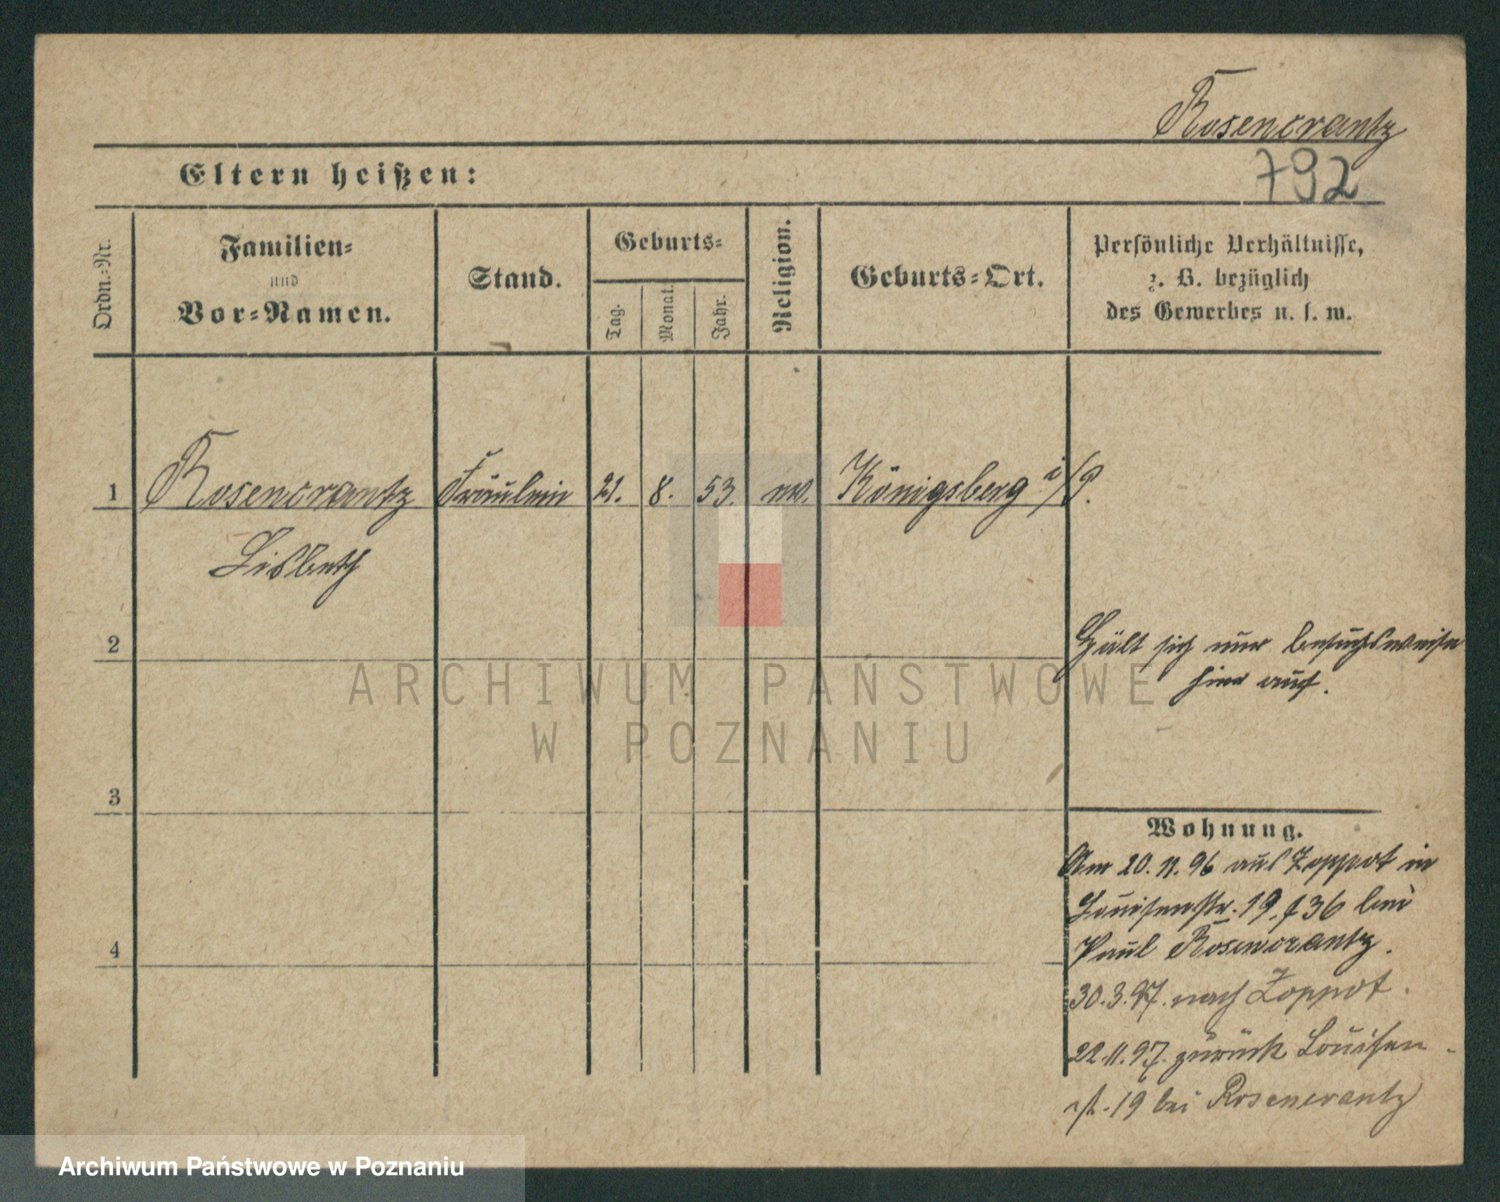 Rosencrantz
792
Eltern heißen:
Ordn.-Nr.
Familien-
und
Vor-Namen.
Stand.
Geburts-
Tag.
Monat.
Jahr.
Religion.
Geburts-Ort.
Persönliche Verhältnisse,
z. B. bezüglich
des Gewerbes u. s. w.
1
Rosencrantz Fräulein 21. 8. 53. ev. Königsberg i/P.
Lisbeth
2
Hält sich nur besuchsweise
hier auf.
3
4
Wohnung.
Am 20.11.96 aus Zoppot in
Louisenstr. 19, 136 bei
Paul Rosencrantz.
30.3.97. nach Zoppot.
22.11.97. zurück Louisen-
str. 19 bei Rosencrantz
ARCHIWUM PAŃSTWOWE
W POZNANIU
Archiwum Państwowe w Poznaniu